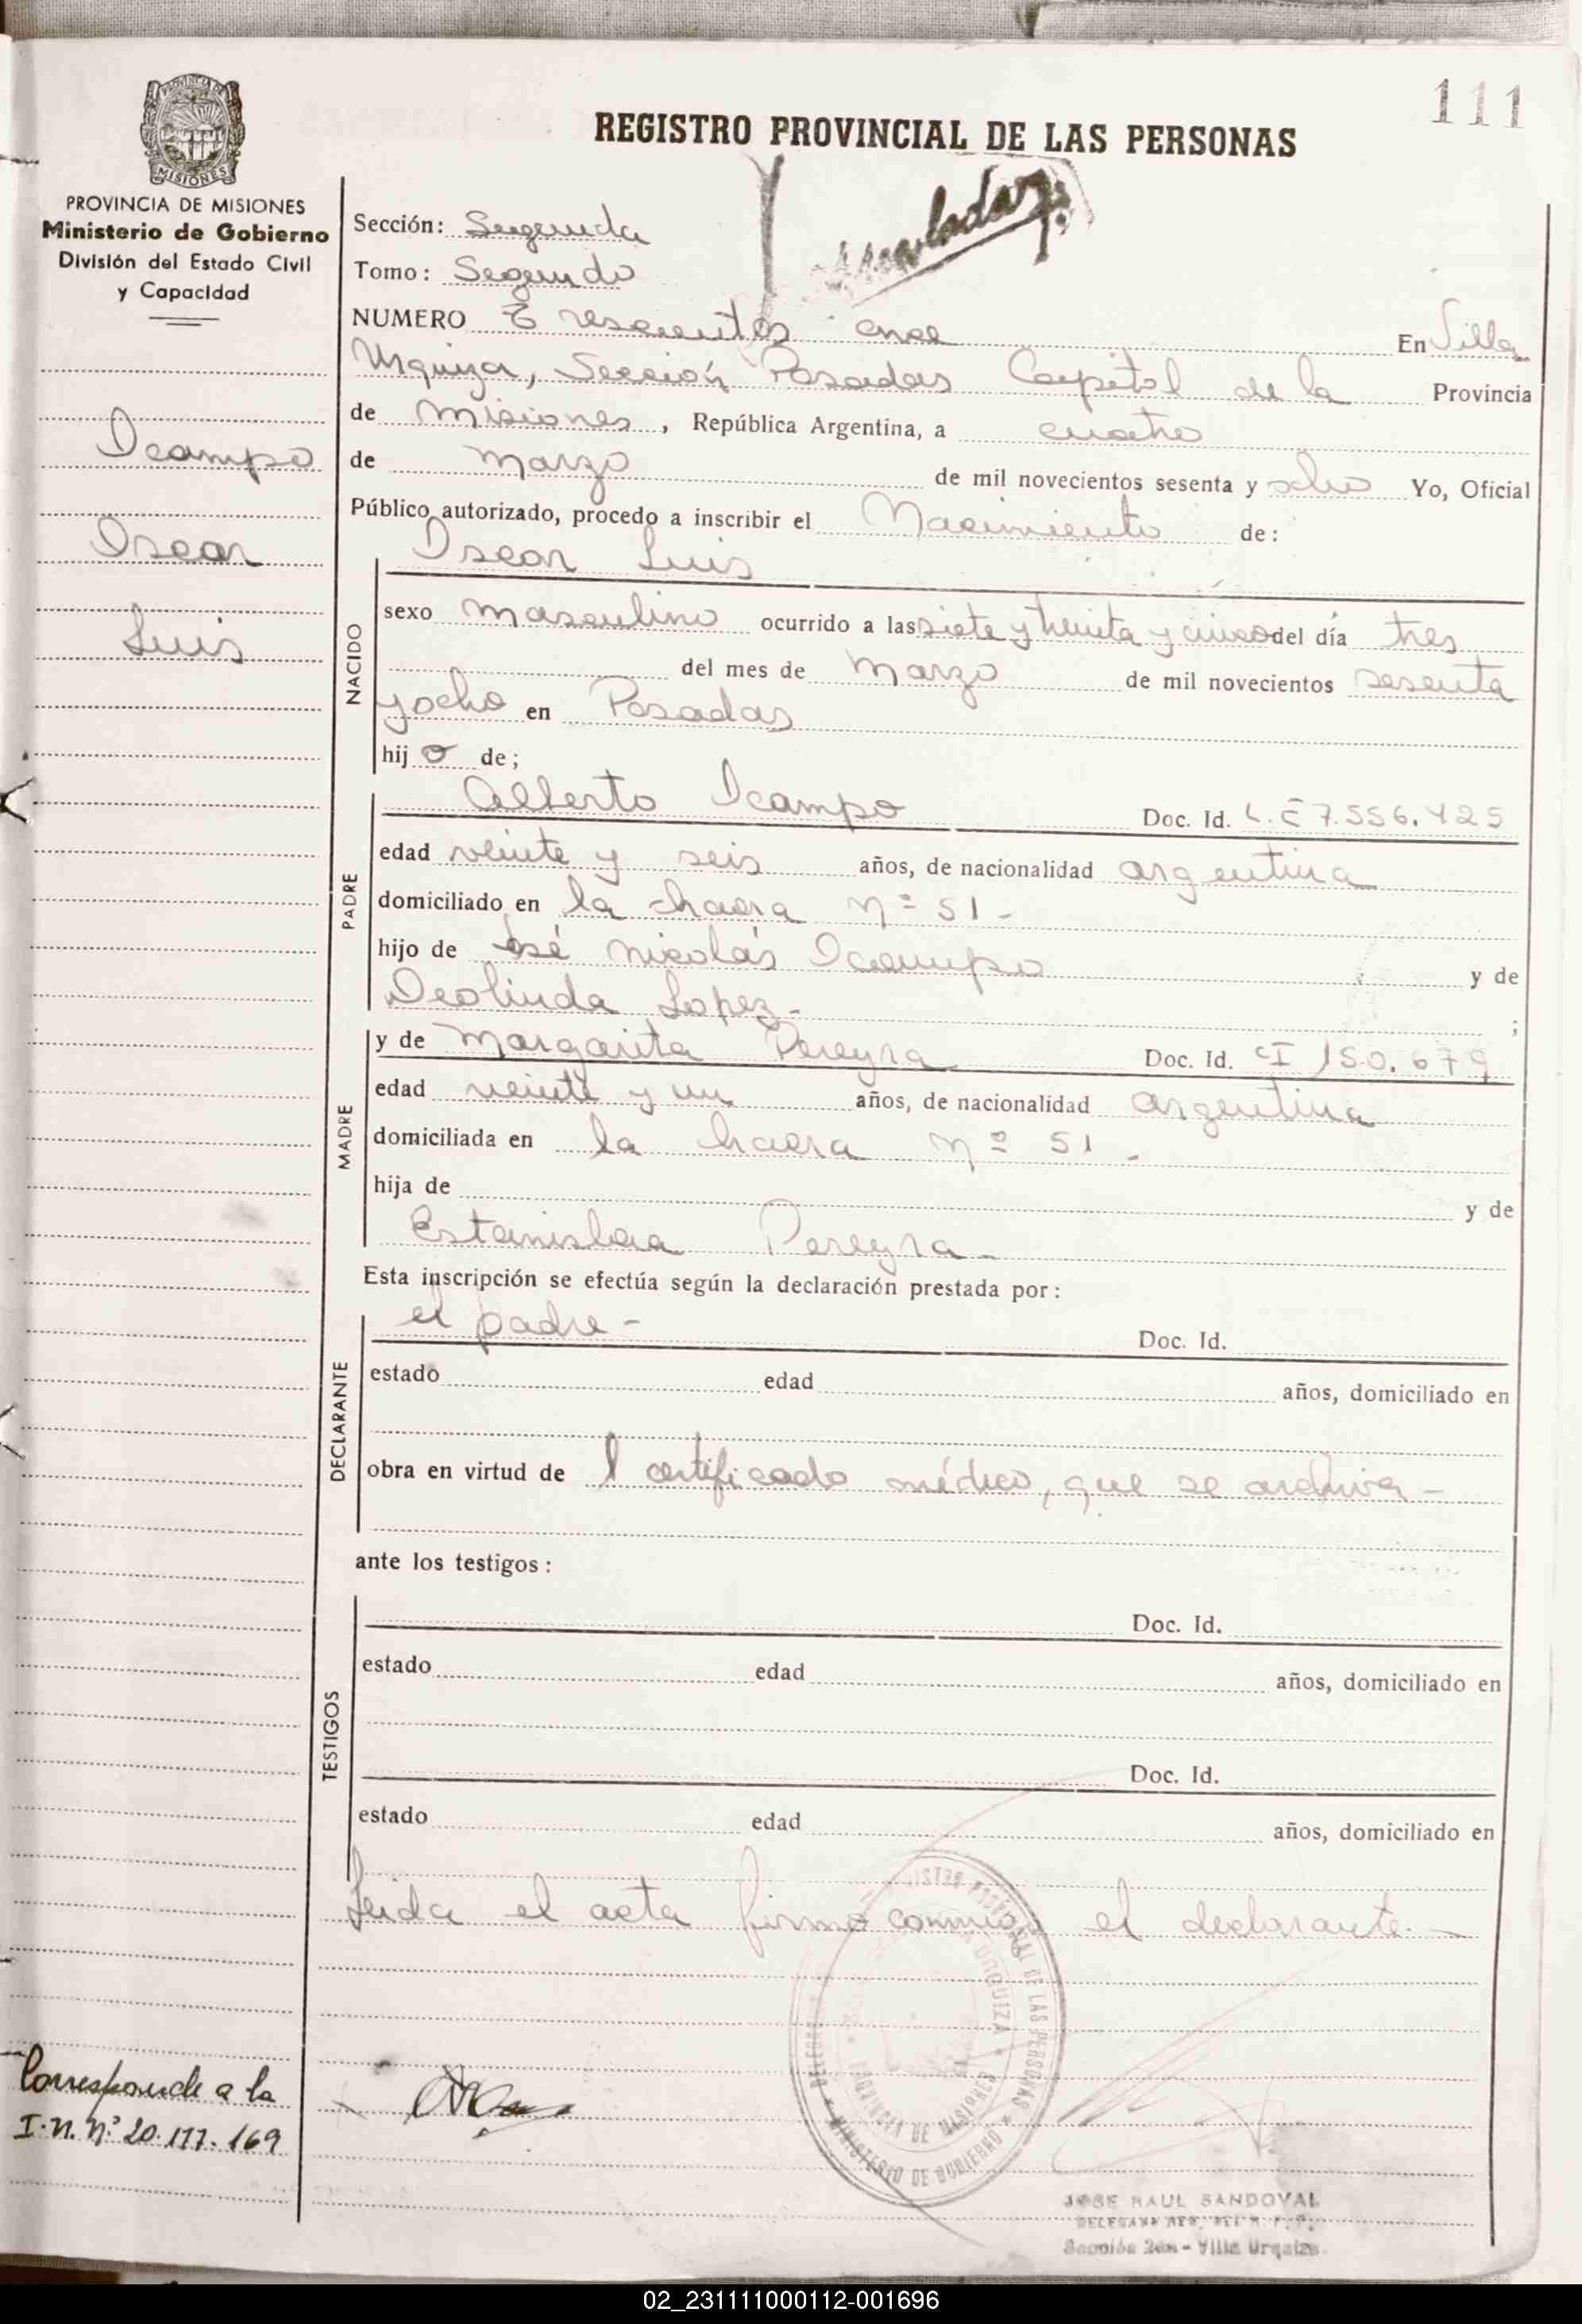 111
REGISTRO PROVINCIAL DE LAS PERSONAS
PROVINCIA DE MISIONES
Ministerio de Gobierno
División del Estado Civil
y Capacidad
Ocampo
Oscar
Luis
Sección: Segunda
Tomo: Segundo
NUMERO Trescientos once En Villa
Urquiza, Sección Posadas Capital de la Provincia
de Misiones, República Argentina, a cuatro
de Marzo de mil novecientos sesenta y ocho Yo, Oficial
Público autorizado, procedo a inscribir el Nacimiento de:
Oscar Luis
NACIDO
sexo masculino ocurrido a las siete y treinta y cinco del día tres
del mes de Marzo de mil novecientos sesenta
y ocho en Posadas
hijo de;
PADRE
Alberto Ocampo Doc. Id. L.E 7.556.425
edad veinte y seis años, de nacionalidad argentina
domiciliado en la chacra nº 51-
hijo de José Nicolás Ocampo y de
Deolinda Lopez- ;
MADRE
y de Margarita Pereyra Doc. Id. CI 150.679
edad veinte y un años, de nacionalidad argentina
domiciliada en la chacra nº 51-
hija de y de
Estanislaa Pereyra-
Esta inscripción se efectúa según la declaración prestada por:
DECLARANTE
el padre- Doc. Id.
estado edad años, domiciliado en
obra en virtud de l certificado médico, que se archiva-
ante los testigos:
TESTIGOS
Doc. Id.
estado edad años, domiciliado en
Doc. Id.
estado edad años, domiciliado en
Leida el acta firma conmigo el declarante.-
Corresponde a la
I.N. Nº 20.117.169
MINISTERIO DE GOBIERNO
PROVINCIA DE MISIONES
JOSE RAUL SANDOVAL
Sección 2da - Villa Urquiza
02_231111000112-001696